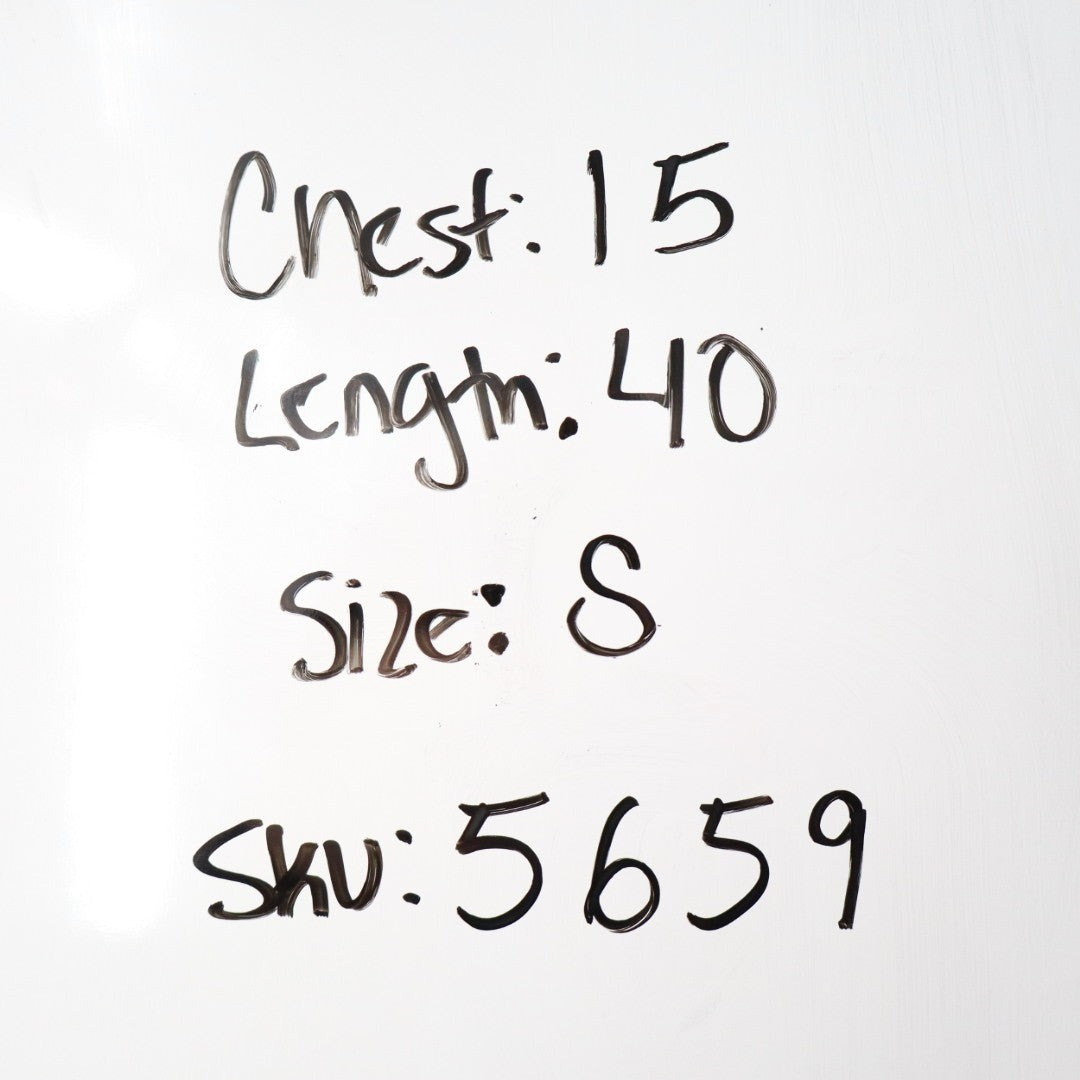 Chest: 15
Length: 40
Size: S
Sku: 5659